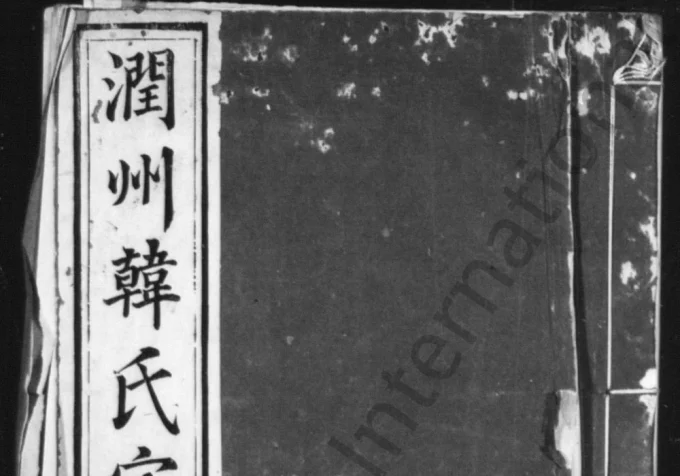 潤州韓氏
International